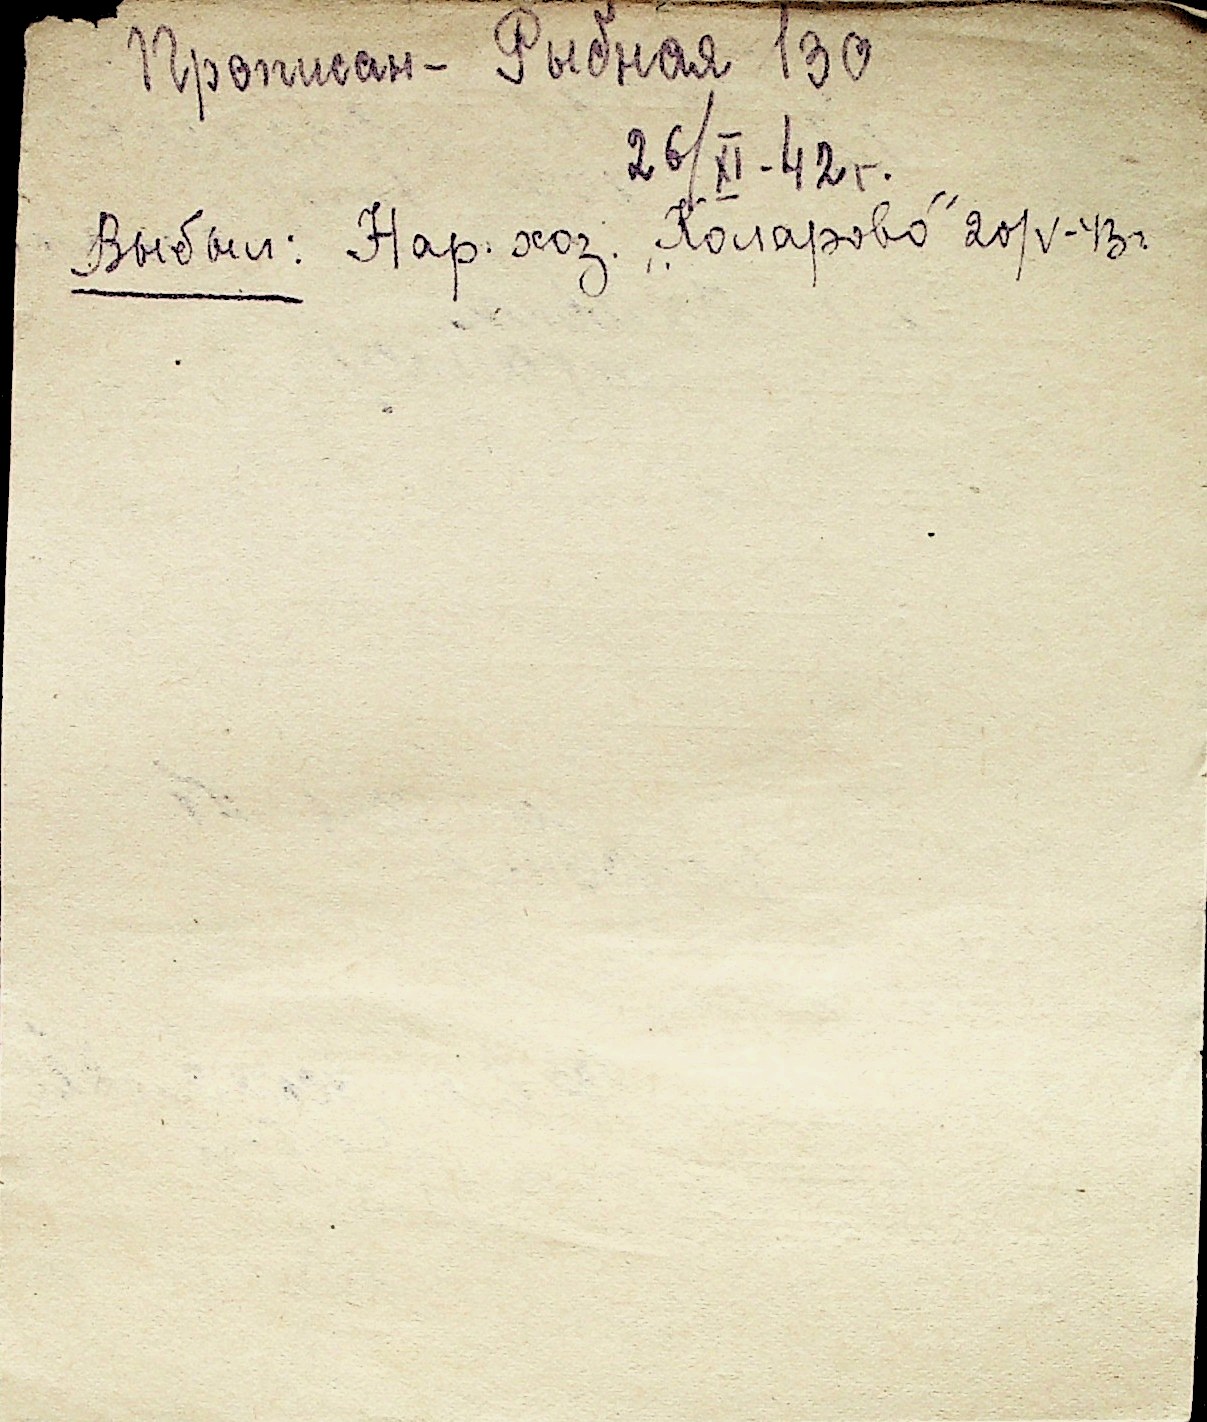 Прописан - Рыбная 130
26/XI - 42 г.
Выбыл: Нар. хоз. „Коларово" 20/V - 43 г